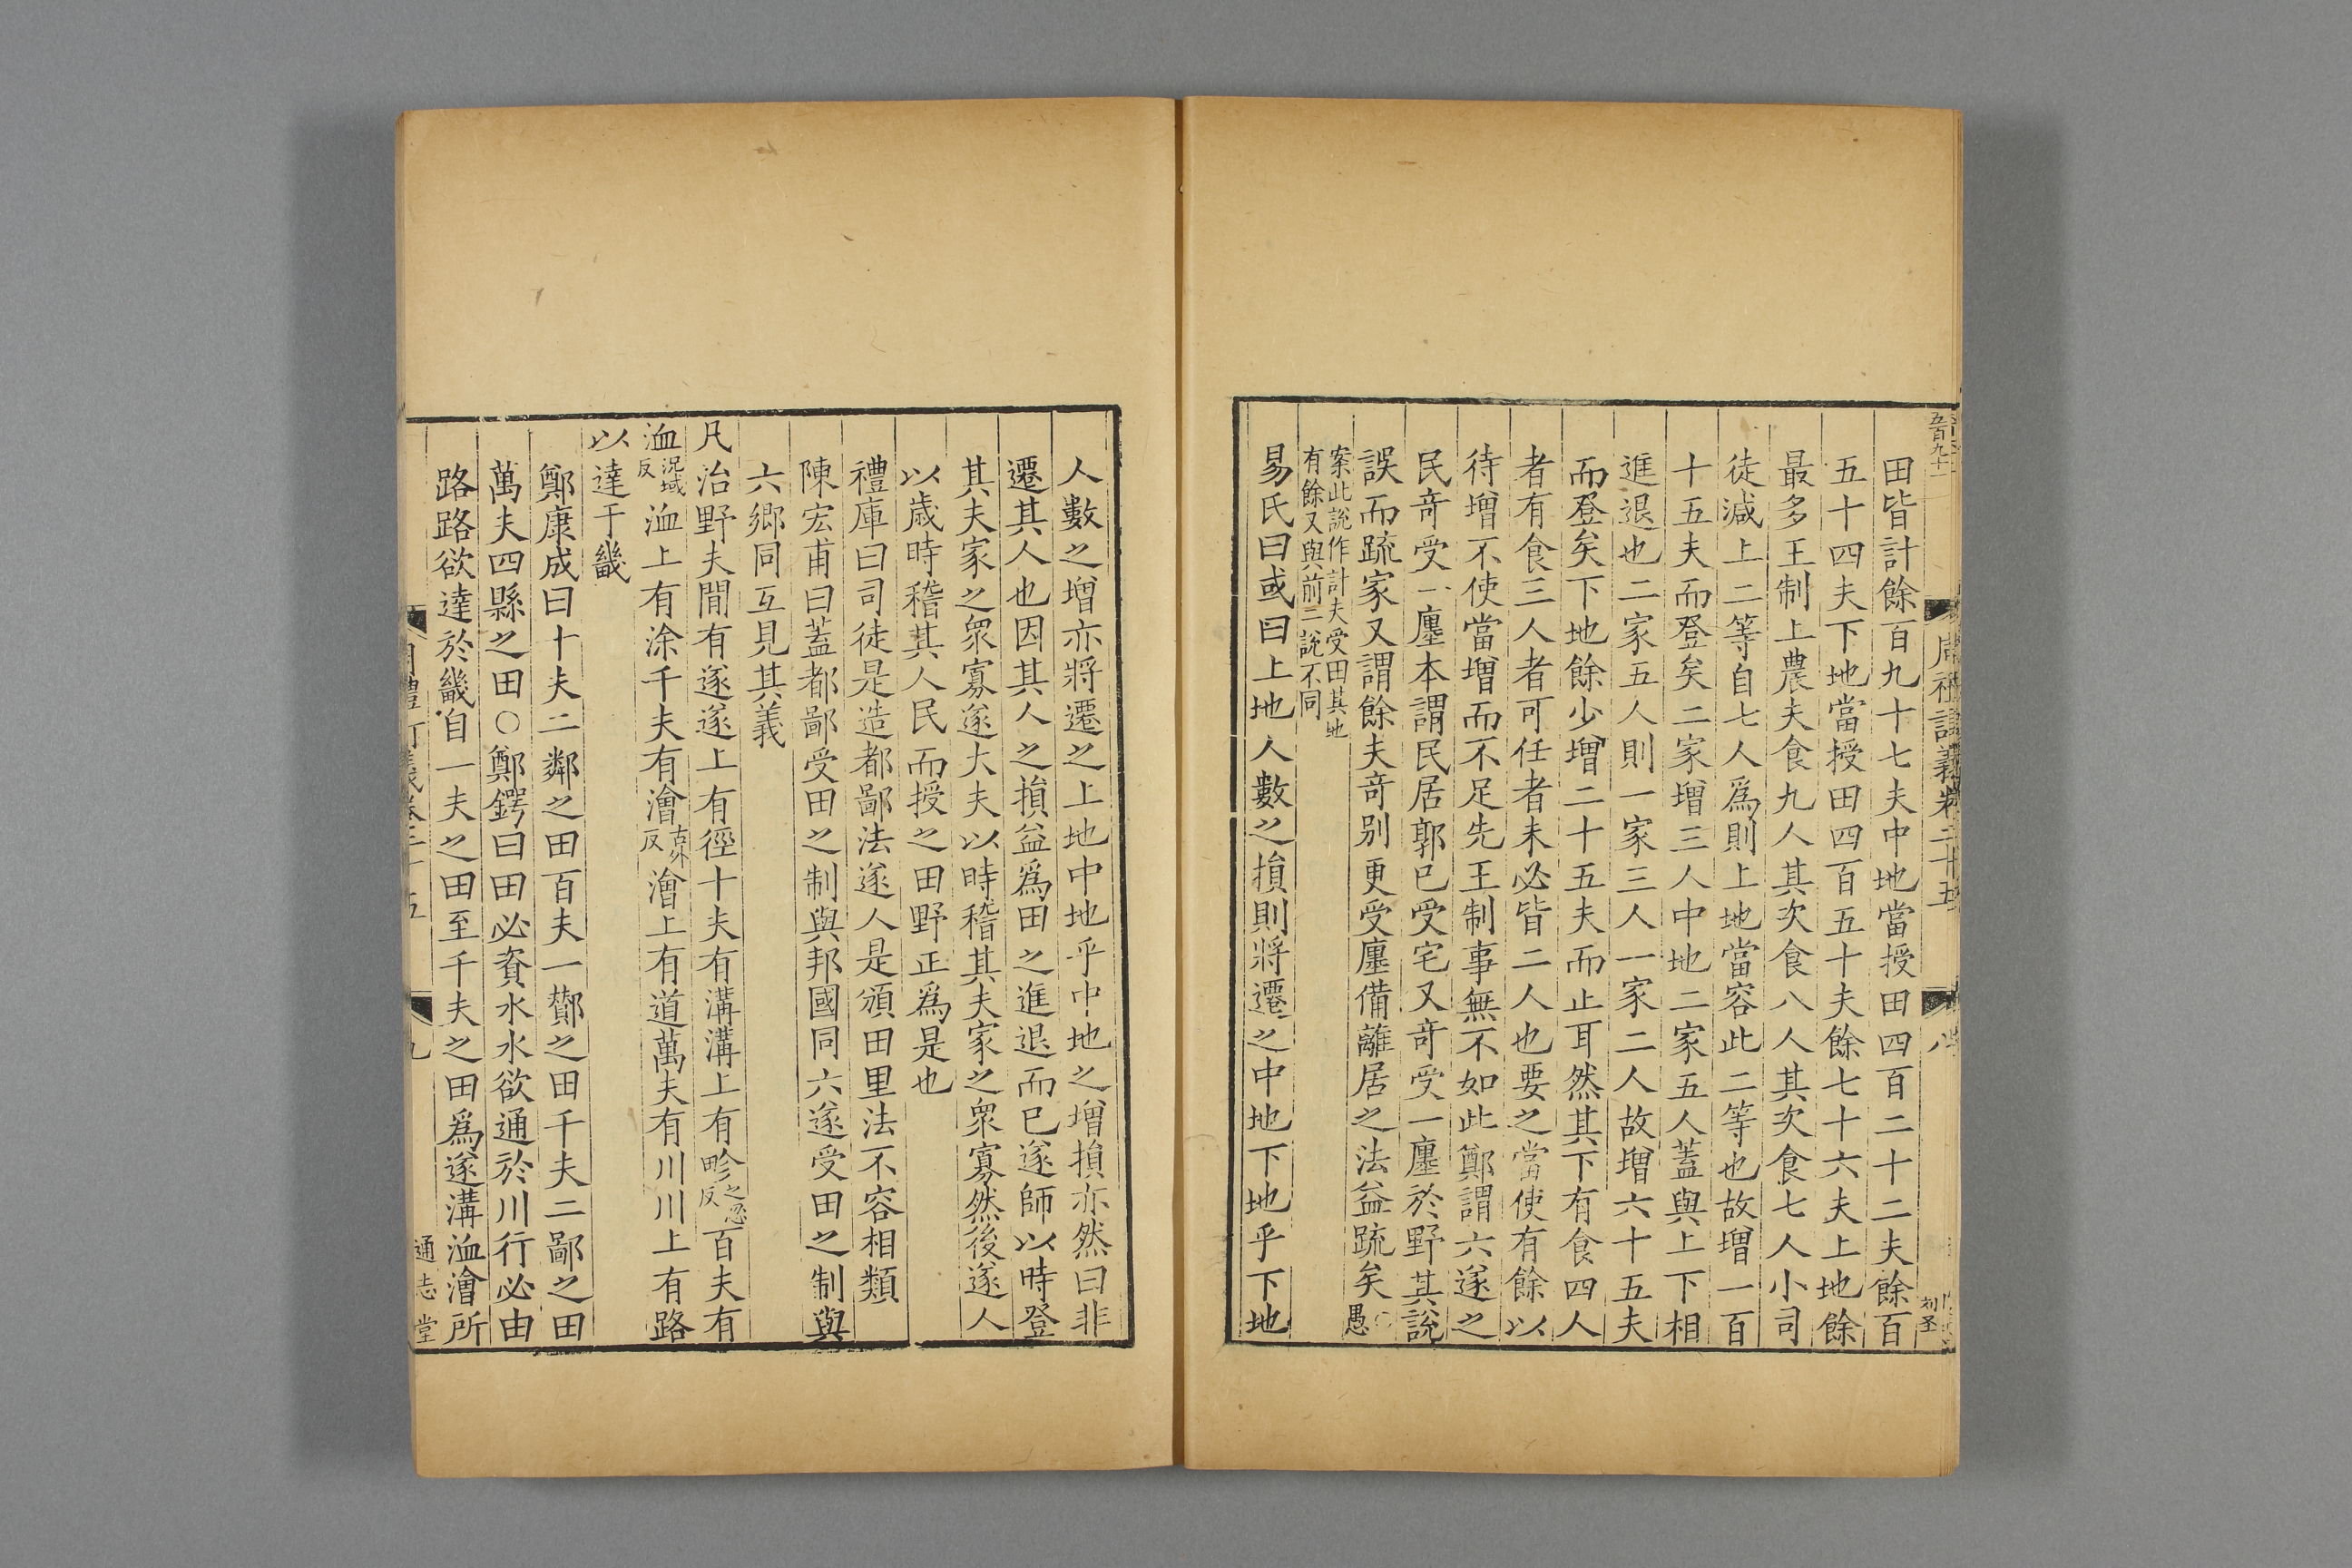 田皆計餘百九十七夫中地當授田四百二十二夫餘百
五十四夫下地當授田四百五十夫餘七十六夫上地餘
最多王制上農夫食九人其次食八人其次食七人小司
徒減上二等自七人爲則上地當容此二等也故增一百
十五夫而登矣二家增三人中地二家五人蓋與上下相
進退也二家五人則一家三人一家二人故增六十五夫
而登矣下地餘少增二十五夫而止耳然其下有食四人
者有食三人者可任者未必皆二人也要之當使有餘以
待增不使當增而不足先王制事無不如此鄭謂六遂之
民奇受一廛本謂民居郭已受宅又奇受一廛於野其說
誤而疏家又謂餘夫奇别更受廛備離居之法益疏矣○愚
案此說作計夫受田其地
有餘又與前二說不同
易氏曰或曰上地人數之損則將遷之中地下地乎下地
人數之增亦將遷之上地中地乎中地之增損亦然曰非
遷其人也因其人之損益爲田之進退而已遂師以時登
其夫家之衆寡遂大夫以時稽其夫家之衆寡然後遂人
以歲時稽其人民而授之田野正爲是也
禮庫曰司徒是造都鄙法遂人是頒田里法不容相類
陳宏甫曰蓋都鄙受田之制與邦國同六遂受田之制與
六鄉同互見其義
凡治野夫間有遂遂上有徑十夫有溝溝上有畛之忍反百夫有
洫況域反洫上有涂千夫有澮古外反澮上有道萬夫有川川上有路
以達于畿
鄭康成曰十夫二鄰之田百夫一酇之田千夫二鄙之田
萬夫四縣之田○鄭鍔曰田必資水水欲通於川行必由
路路欲達於畿自一夫之田至千夫之田爲遂溝洫澮所
通志堂